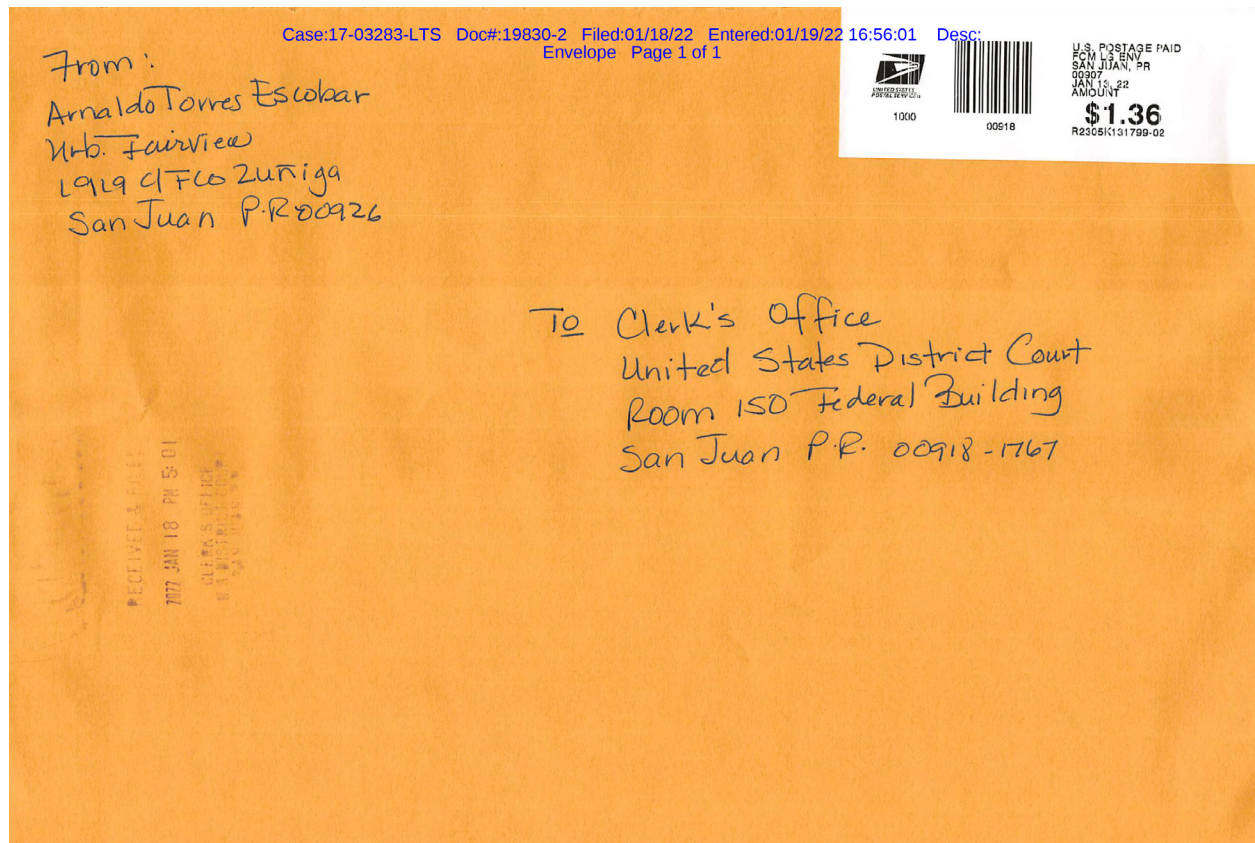 Case:17-03283-LTS Doc#:19830-2 Filed:01/18/22 Entered:01/19/22 16:56:01 Desc:
Envelope Page 1 of 1
From:
Arnaldo Torres Escobar
Urb. Fairview
1919 C/ Fco Zuñiga
San Juan P.R 00926
UNITED STATES
POSTAL SERVICE
1000
00918
U.S. POSTAGE PAID
FCM LG ENV
SAN JUAN, PR
00907
JAN 13, 22
AMOUNT
$1.36
R2305K131799-02
To Clerk's Office
United States District Court
Room 150 Federal Building
San Juan P.R. 00918-1767
RECEIVED & FILED
2022 JAN 18 PM 5:01
CLERK'S OFFICE
U.S. DISTRICT COURT